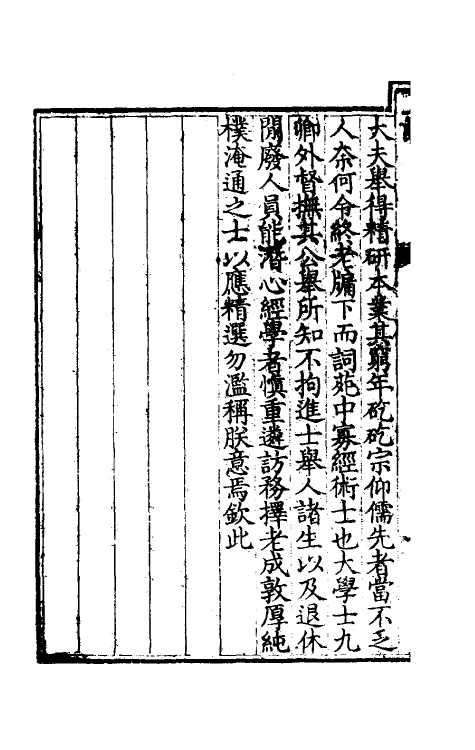 大夫舉得精研本業其窮年矻矻宗仰儒先者當不乏
人奈何令終老牖下而詞苑中寡經術士也大學士九
卿外督撫其公舉所知不拘進士舉人諸生以及退休
閒廢人員能潛心經學者慎重遴訪務擇老成敦厚純
樸淹通之士以應精選勿濫稱朕意焉欽此